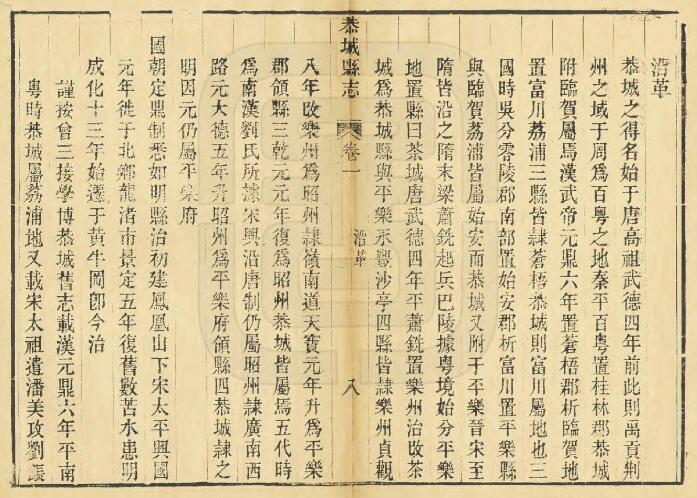 沿革
恭城之得名始于唐高祖武德四年前此則禹貢荆
州之域于周爲百粤之地秦平百粤置桂林郡恭城
附臨賀屬焉漢武帝元鼎六年置蒼梧郡析臨賀地
置富川荔浦三縣皆隷蒼梧恭城則富川屬地也三
國時吳分零陵郡南部置始安郡析富川置平樂縣
與臨賀荔浦皆屬始安而恭城又附于平樂晉宋至
隋皆沿之隋末梁蕭銑起兵巴陵據粤境始分平樂
地置縣曰茶城唐武德四年平蕭銑置樂州治改茶
城爲恭城縣與平樂永豐沙亭四縣皆隷樂州貞觀
恭城縣志
卷一
沿革
八
八年改樂州爲昭州隷嶺南道天寳元年升爲平樂
郡領縣三乾元元年復爲昭州恭城皆屬焉五代時
爲南漢劉氏所據宋興沿唐制仍屬昭州隷廣南西
路元大德五年升昭州爲平樂府領縣四恭城隷之
明因元仍屬平樂府
國朝定鼎制悉如明縣治初建鳳凰山下宋太平興國
元年徙于北鄉龍渚市景定五年復舊數苦水患明
成化十三年始遷于黄牛岡卽今治
謹按曾三接學博恭城舊志載漢元鼎六年平南
粤時恭城屬荔浦地又載宋太祖遣潘美攻劉鋹